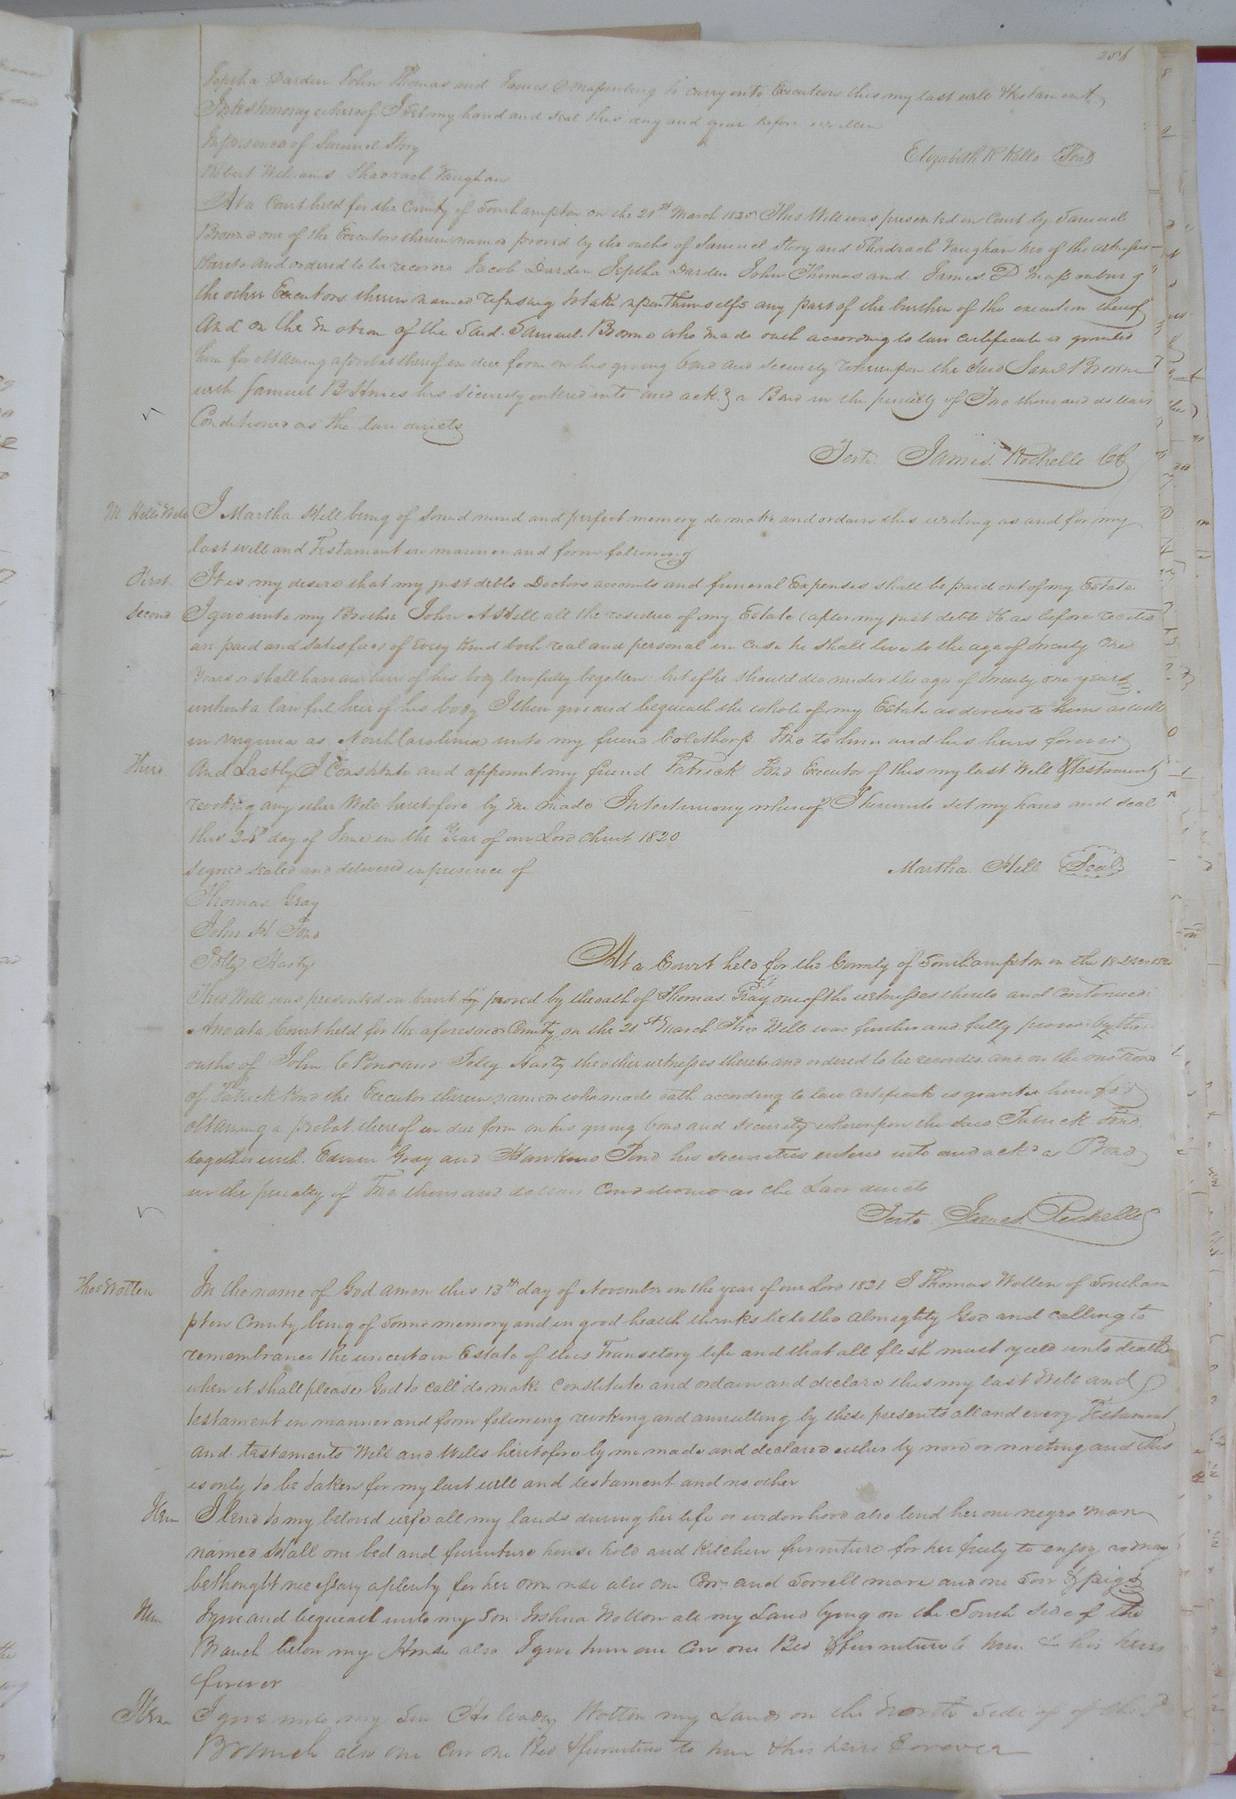 256
Jeptha Darden John Thomas and James D Massenburg to carry into Execution this my last will & testament
In testimony whereof I set my hand and seal this day and year before written
In presence of Samuel Story
Elizabeth R Kello Seal
Robert Williams Shadrach Vaughan
At a Court held for the County of Southampton on the 21st March 1825 This Will was presented in Court by Samuel
Browne one of the Executors therein named proved by the oaths of Samuel Story and Shadrach Vaughan two of the witnesses
thereto and ordered to be recorded Jacob Darden Jeptha Darden John Thomas and James D Massenburg
the other Executors therein named refusing to take upon themselfs any part of the burthen of the execution thereof
And on the motion of the said Samuel Browne who made oath according to law certificate is granted
him for obtaining a probat thereof in due form on his giving bond and security whereupon the said Saml Browne
with Samuel B Hines his security entered into and ackd a Bond in the penalty of Two thousand dollars
Conditioned as the law directs
Teste James Rochelle CC
M Hill's Will
I Martha Hill being of sound mind and perfect memory do make and ordain this writing as and for my
last will and Testament in manner and form following
First
It is my desire that my just debts Doctors accounts and funeral Expenses shall be paid out of my Estate
Second
I give unto my Brother John A Hill all the residue of my Estate (after my just debts &c as before recited
are paid and satisfied) of every kind both real and personal in case he shall live to the age of twenty one
Years or shall have an heir of his body lawfully begotten but if he should die under the age of twenty one years
without a lawful heir of his body I then give and bequeath the whole of my Estate as devised to him as well
in Virginia as North Carolina unto my friend Colethorp Pond to him and his heirs forever
Third
And Lastly I Constitute and appoint my friend Patrick Pond Executor of this my last Will & Testament
revoking any other Will heretofore by me made In testimony whereof I hereunto set my hand and seal
this day of June in the Year of our Lord Christ 1820
Signed sealed and delivered in presence of
Martha Hill Seal
Thomas Gray
John Pond
Polly Hasty
At a Court held for the County of Southampton on the 18
This Will was presented in Court & proved by the oath of Thomas Gray one of the witnesses thereto and Continued
And at a Court held for the aforesaid County on the 21st March This Will was further and fully proved by the
oaths of John Pond and Polly Hasty the other witnesses thereto and ordered to be recorded and on the motion
of Patrick Pond the Executor therein named who made oath according to law certificate is granted him for
obtaining a probat thereof in due form on his giving bond and security whereupon the said Patrick Pond
together with Edwin Gray and Hawkins Pond his securities entered into and ackd a Bond
in the penalty of Two thousand dollars Conditioned as the Law directs
Teste James Rochelle
Thos Wotten
In the name of God amen this 13th day of November in the year of our Lord 1821 I Thomas Wotten of Southam
pton County being of sound memory and in good health thanks be to the almighty God and calling to
remembrance the uncertain Estate of this Transetory life and that all flesh must yield unto death
when it shall please God to call do make Constitute and ordain and declare this my last Will and
testament in manner and form following revoking and annulling by these presents all and every Testament
and testaments Will and Wills heretofore by me made and declared either by word or writing and this
is only to be taken for my last will and testament and no other
Item
I lend to my beloved wife all my lands during her life or widowhood also lend her one negro man
named Hall one bed and furniture house hold and kitchen furniture for her freely to enjoy
bethought necessary a plenty for her own use also one Cow and Sorrell mare and one Sow & pigs
Item
I give and bequeath unto my Son Joshua Wotton all my Land lying on the South side of the
Branch below my House also I give him one Cow one Bed & furniture to him & his heirs
forever
Item
I give unto my Son Wotton my Lands on the North side of of the Sd
Branch also one Cow one Bed & furniture to him & his heirs Forever